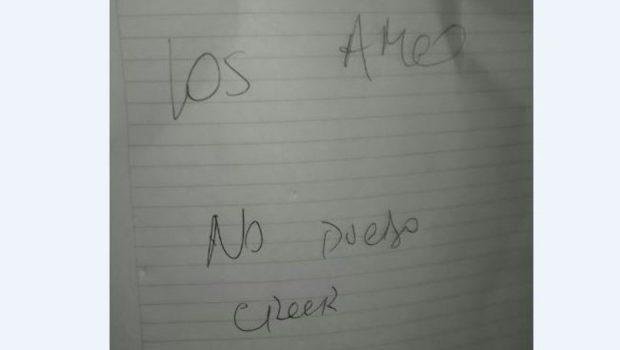 Los AMO
No puedo
creer